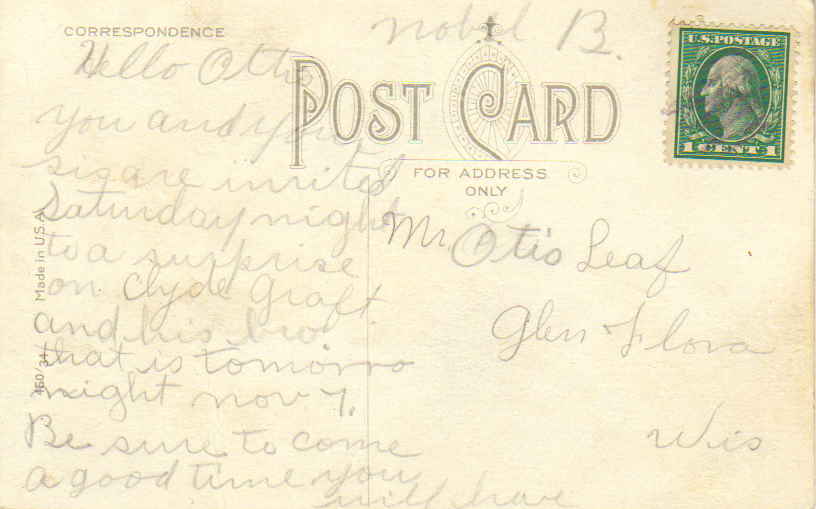 CORRESPONDENCE
nobel B.
U.S. POSTAGE
1 CENTS 1
POST CARD
FOR ADDRESS
ONLY
Hello Otto
you and your
sis are invited
Saturday night
to a surprise
on Clyde Graft
and his bro
that is tomorro
night nov 7.
Be sure to come
a good time you
will have
Mr Otis Leaf
Glen Flora
Wis
Made in U.S.A.
450/34